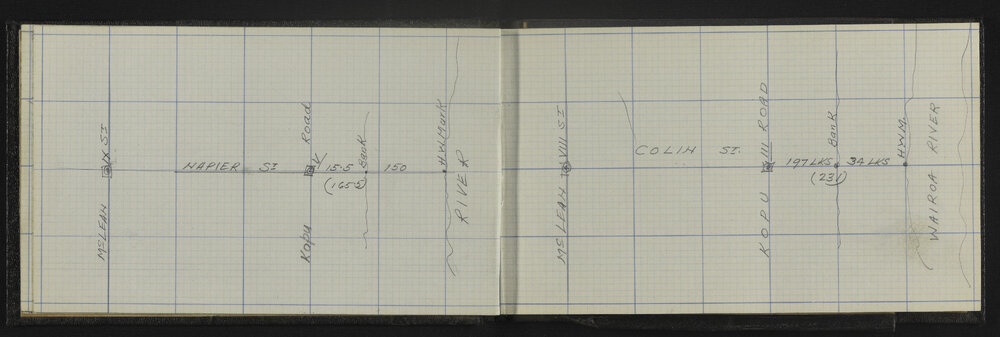 McLEAN IX ST
NAPIER ST
Kopu V Road
15.5
(165.5)
Bank
150
H.W. Mark
RIVER
McLEAN VIII ST
COLIN ST.
KOPU III ROAD
197 LKS
(231)
Bank
34 LKS
H.W.M.
WAIROA RIVER